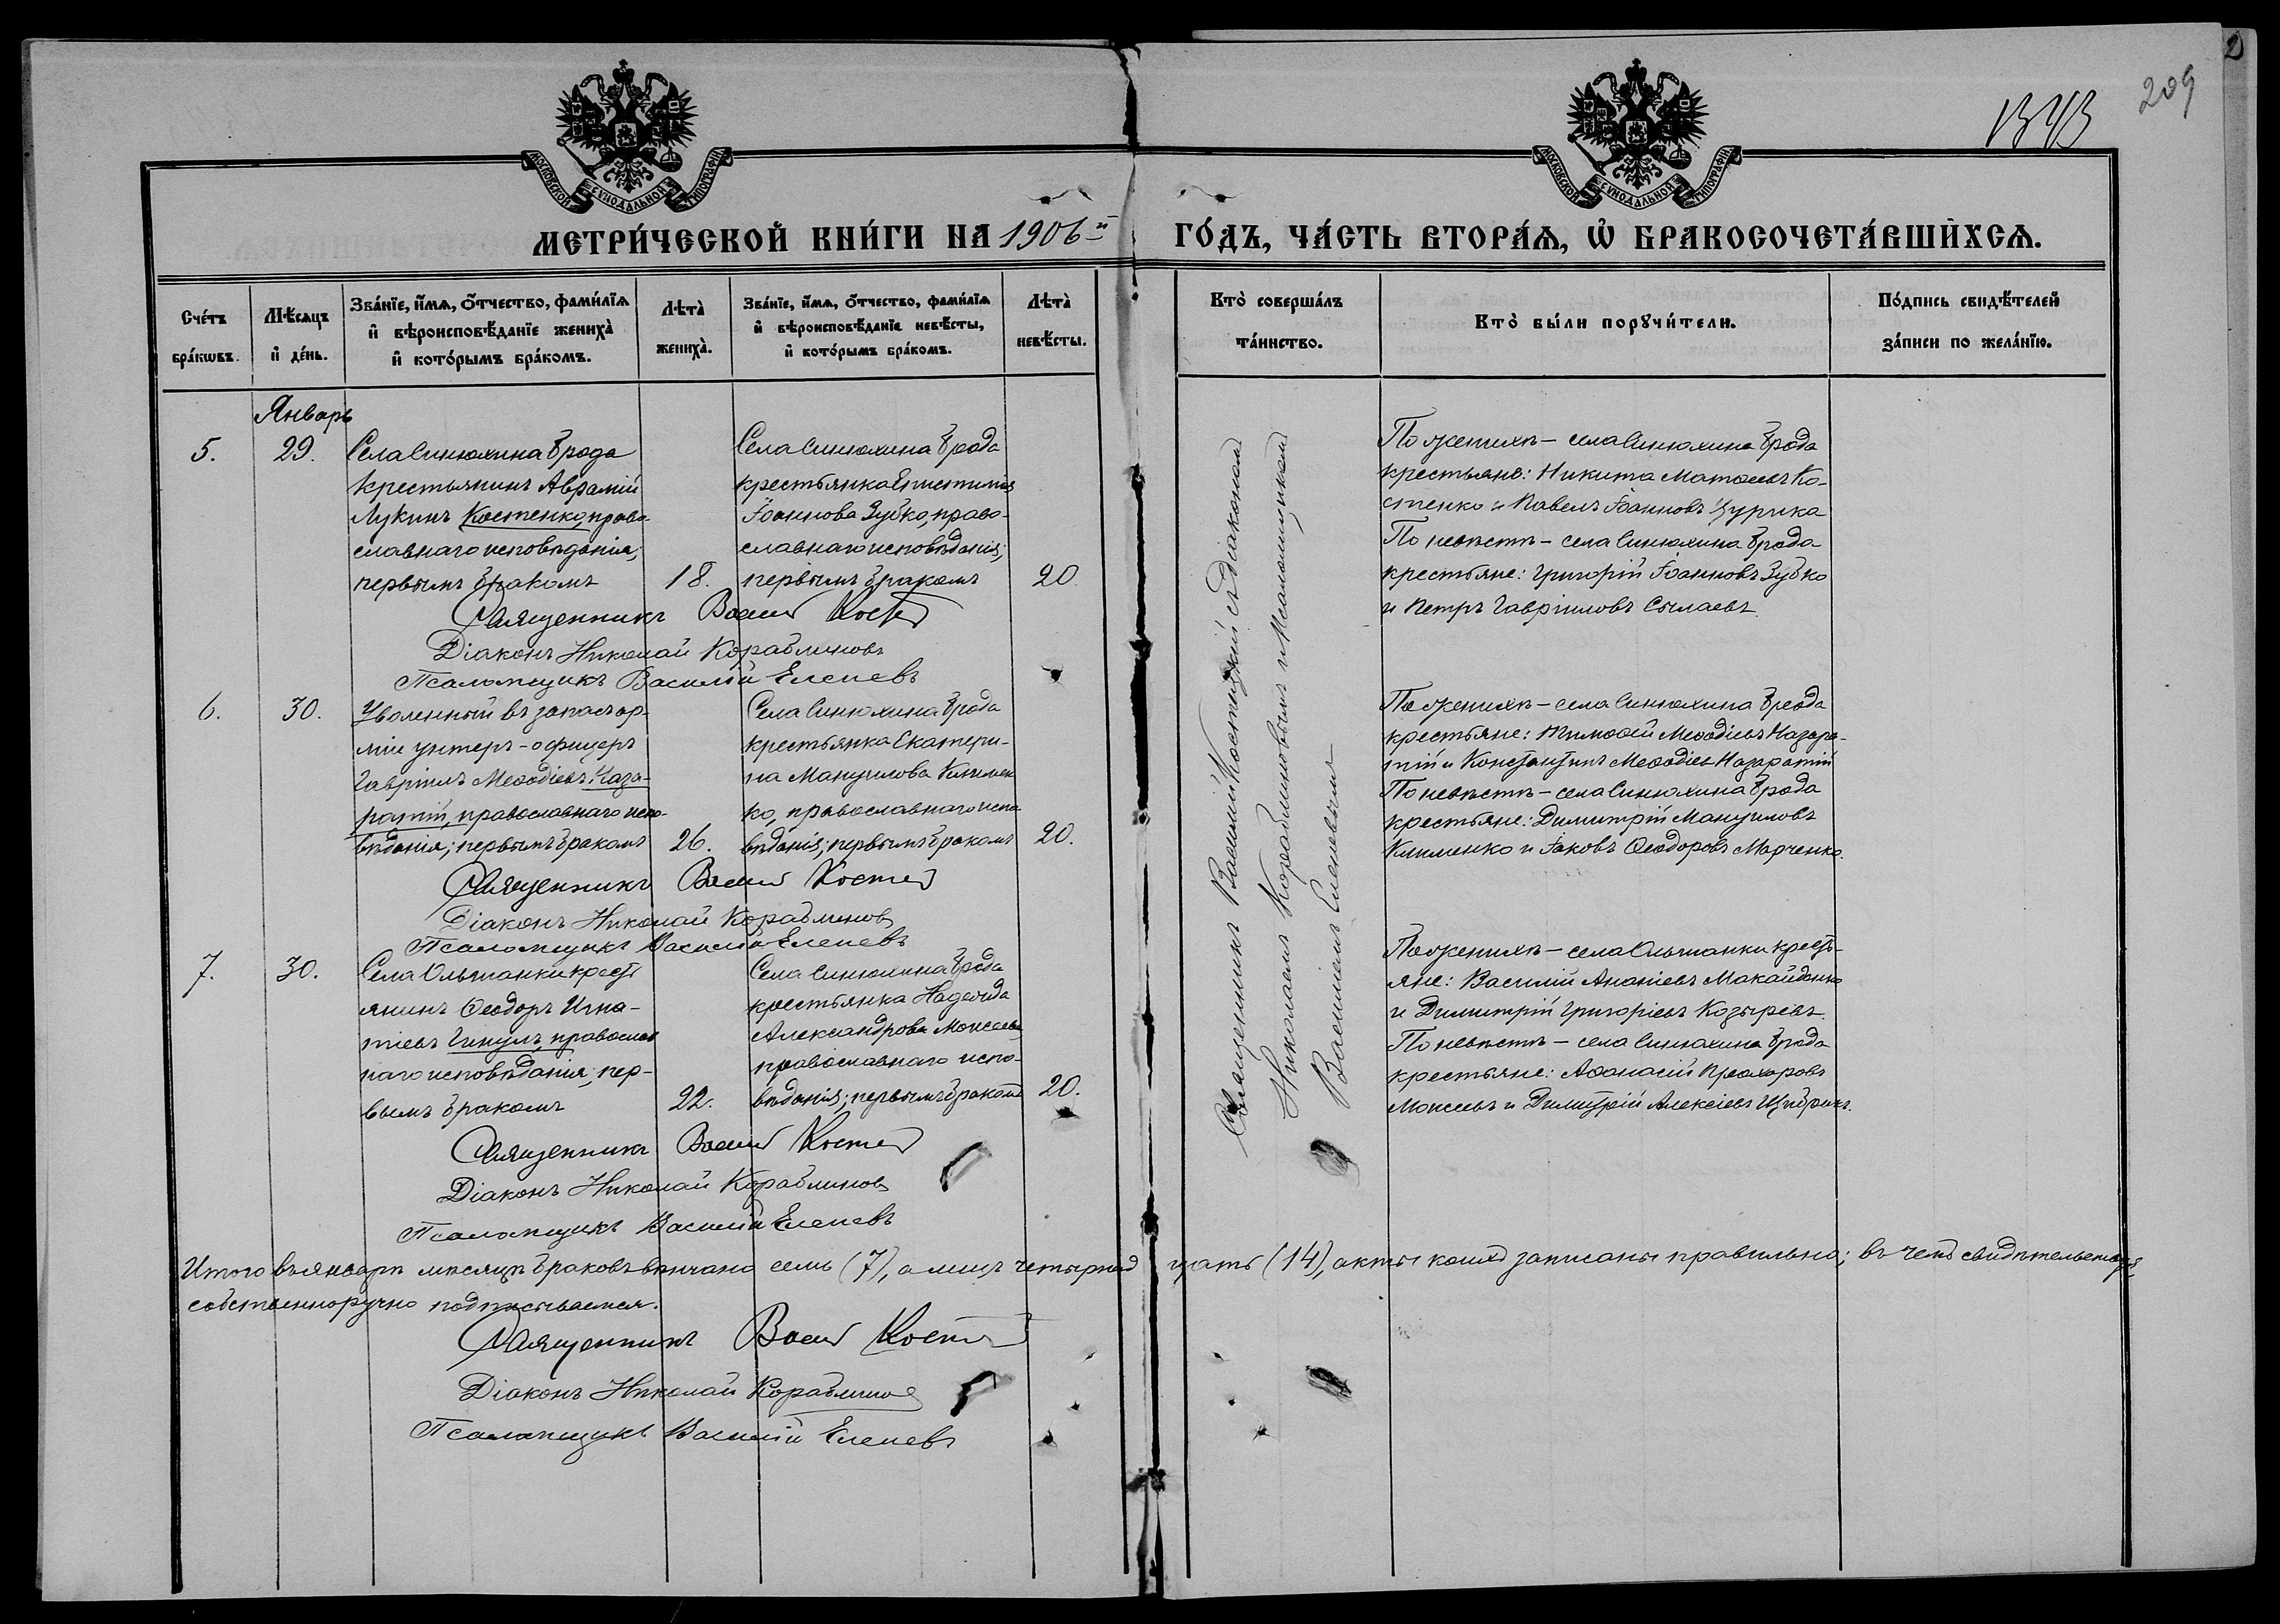 209
МОСКОВСКОЙ СУНОДАЛЬНОЙ ТИПОГРАФІИ
МОСКОВСКОЙ СУНОДАЛЬНОЙ ТИПОГРАФІИ
МЕТРИ́ЧЕСКОЙ КНИ́ГИ НА 1906й ГО́ДЪ, ЧА́СТЬ ВТОРА́Я, Ѿ БРАКОСОЧЕТА́ВШИХСЯ.
Сче́тъ бра́кωвъ.
Мѣ́сяцъ и де́нь.
Зва́нїе, и́мя, о́тчество, фами́лїя
и вѣроисповѣ́данїе жениха̀
и кото́рымъ бра́комъ.
Лѣта̀ жениха̀.
Зва́нїе, и́мя, о́тчество, фами́лїя
и вѣроисповѣ́данїе невѣ́сты,
и кото́рымъ бра́комъ.
Лѣта̀ невѣ́сты.
Кто̀ соверша́лъ та́инство.
Кто̀ бы́ли порꙋчи́тели.
По́дпись свидѣ́телей за́писи по жела́нїю.
Январь
5.
29.
Села Синюхина Брода
крестьянинъ Аврамій
Лукинъ Костенко, право-
славнаго исповѣданія;
первымъ бракомъ
18.
Села Синюхина Брода
крестьянка Епистимія
Іоаннова Зубко, право-
славнаго исповѣданія;
первымъ бракомъ
20.
По женихѣ – села Синюхина Брода
крестьяне: Никита Матѳеевъ Ко-
стенко и Павелъ Іоанновъ Цурика
По невѣстѣ – села Синюхина Брода
крестьяне: Григорій Іоанновъ Зубко
и Петръ Гавріиловъ Сылаевъ.
Священникъ
Діаконъ Николай Кораблиновъ
Псаломщикъ Василій Еленевъ
6.
30.
Уволенный въ запасъ ар-
міи унтеръ-офицеръ
Гавріилъ Меѳодіевъ Наза-
ратій, православнаго испо-
вѣданія; первымъ бракомъ
26.
Села Синюхина Брода
крестьянка Екатери-
на Мануилова Климен
ко, православнаго испо
вѣданія; первымъ бракомъ
20.
По женихѣ – села Синюхина Брода
крестьяне: Тимоѳей Меѳодіевъ Назара-
тій и Константинъ Меѳодіевъ Назаратій
По невѣстѣ – села Синюхина Брода
крестьяне: Димитрій Мануиловъ
Клименко и Іаковъ Ѳеодоровъ Марченко.
Священникъ
Діаконъ Николай Кораблиновъ
Псаломщикъ Василій Еленевъ
7.
30.
Села Ольшанки кресть
янинъ Ѳеодоръ Игна-
тіевъ Гикулъ, православ
наго исповѣданія; пер-
вымъ бракомъ
22.
Села Синюхина Брода
крестьянка Надежда
Александрова Моисеева
православнаго испо-
вѣданія; первымъ бракомъ
20.
По женихѣ – села Ольшанки кресть-
яне: Василій Ананіевъ Макайденко
и Димитрій Григоріевъ Козыревъ.
По невѣстѣ – села Синюхина Брода
крестьяне: Аѳанасій Прохоровъ
Моисеевъ и Димитрій Алексіевъ
Священникъ
Діаконъ Николай Кораблиновъ
Псаломщикъ Василій Еленевъ
Священникъ Василій Костецкій съ діакономъ
Николаемъ Кораблиновымъ и псаломщикомъ
Василіемъ Еленевымъ
Итого въ январѣ мѣсяцѣ браковъ вѣнчано семь (7), а лицъ четырнадцать (14), акты коихъ записаны правильно; въ чемъ свидѣтельствуя,
собственноручно подписываемся.
Священникъ
Діаконъ Николай Кораблиновъ
Псаломщикъ Василій Еленевъ